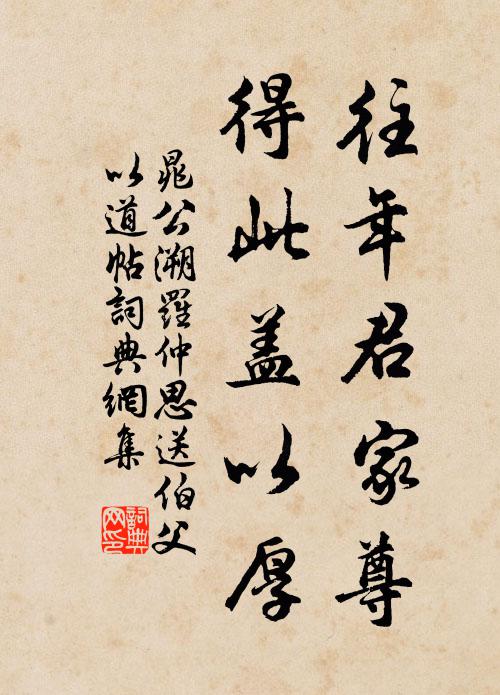 往年君家尊
得此盖以厚
晁公溯羅仲思送伯父
以道帖詞典網集
詞典
网印